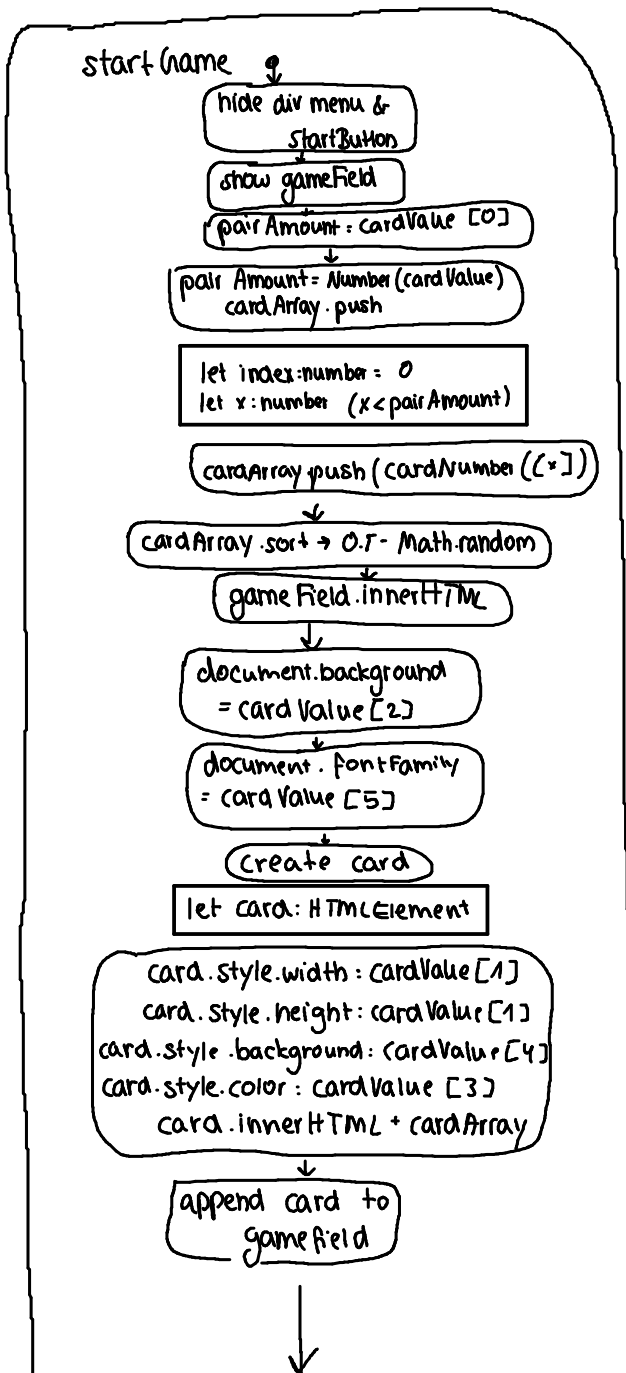 startGame
hide div menu &
startButton
show gameField
pairAmount = cardValue [0]
pair Amount = Number(cardValue)
cardArray.push
let index:number = 0
let x:number (x<pairAmount)
cardArray.push(cardNumber([x])
cardArray.sort → 0.5- Math.random
gameField.innerHTML
document.background
= cardValue[2]
document.fontFamily
= cardValue [5]
create card
let card: HTMLElement
card.style.width: cardValue[1]
card.style.height: cardValue[1]
card.style.background: cardValue[4]
card.style.color: cardValue [3]
card.innerHTML + cardArray
append card to
gamefield